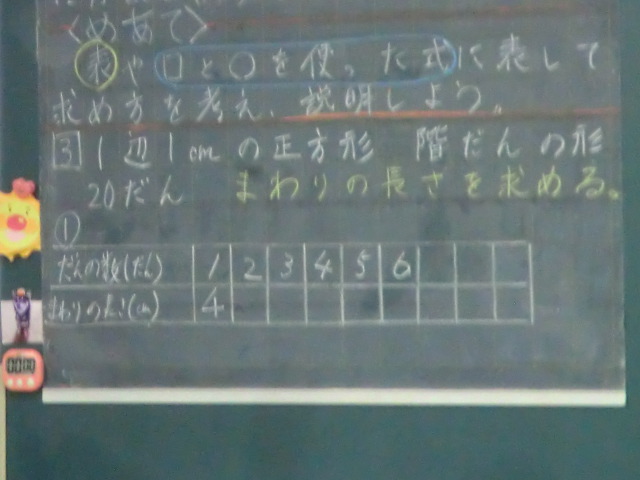 〈めあて〉
表や□と○を使った式に表して
求め方を考え、説明しよう。
3 1辺1cmの正方形 階だんの形
20だん まわりの長さを求める。
①
だんの数(だん) 1 2 3 4 5 6
まわりの長さ(cm) 4
00:00